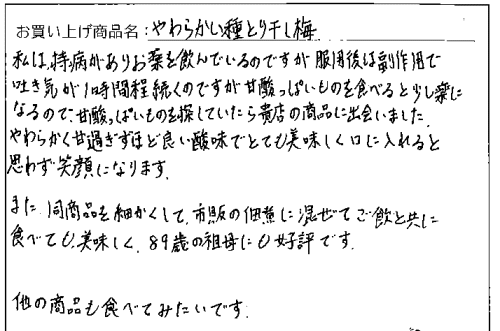 お買い上げ商品名:やわらかい種とり干し梅
私は、持病がありお薬を飲んでいるのですが服用後は副作用で
吐き気が1時間程続くのですが甘酸っぱいものを食べると少し楽に
なるので、甘酸っぱいものを探していたら貴店の商品に出会いました。
やわらかく甘過ぎずほど良い酸味でとても美味しく口に入れると
思わず笑顔になります。
また、同商品を細かくして、市販の佃煮に混ぜてご飲と共に
食べても、美味しく、89歳の祖母にも好評です。
他の商品も食べてみたいです。